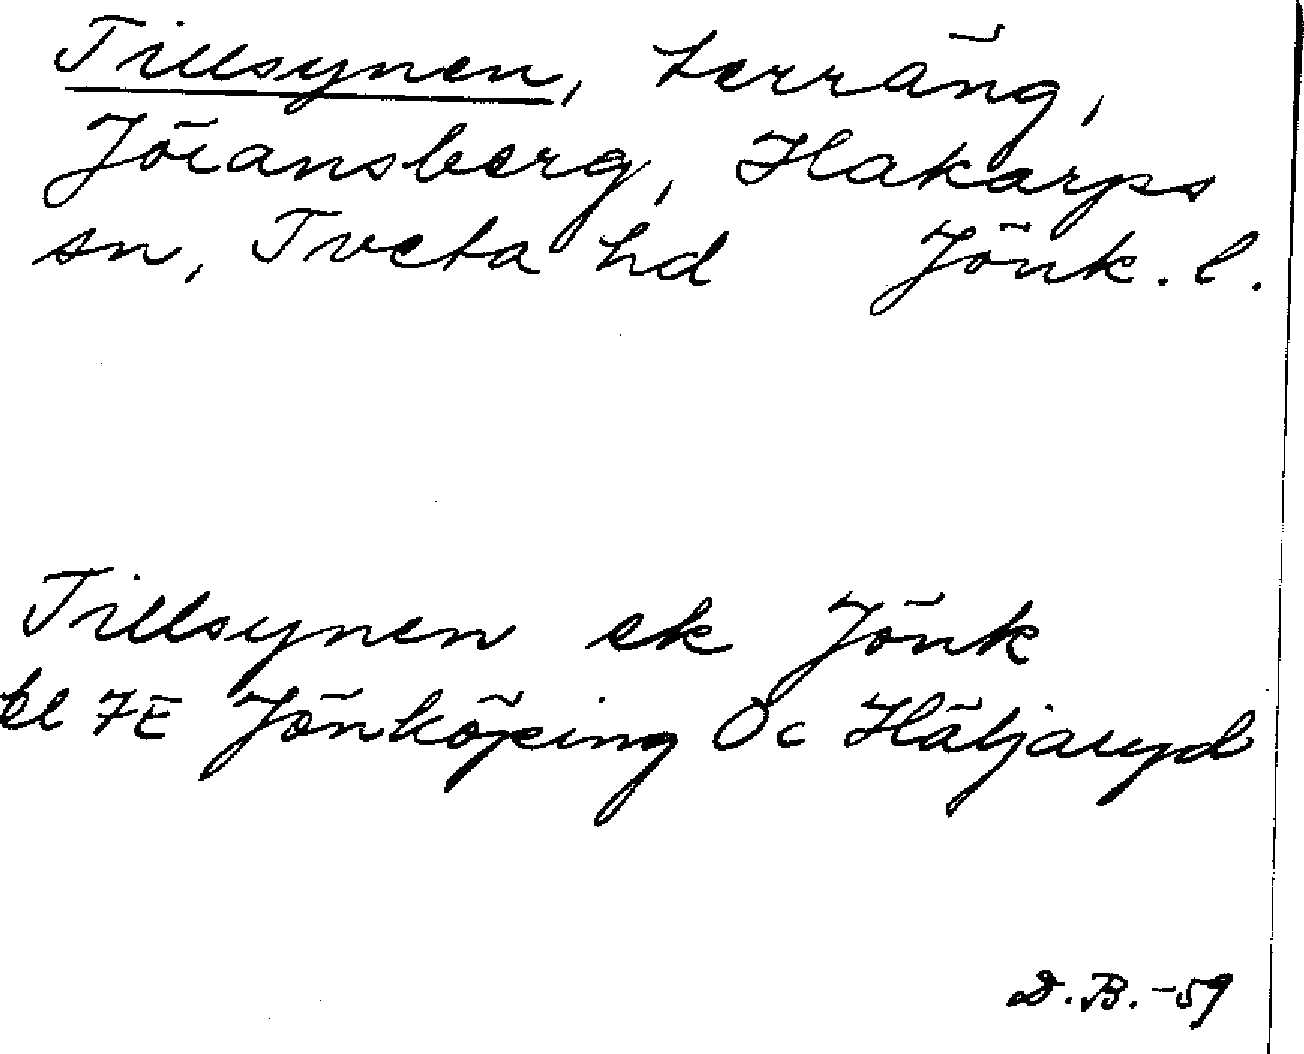 Tillsynen, terräng,
Jöransberg, Hakarps
sn, Tveta hd Jönk. l.
Tillsynen ek Jönk
bl 7E Jönköping Öc Häljaryd
D.B.-59